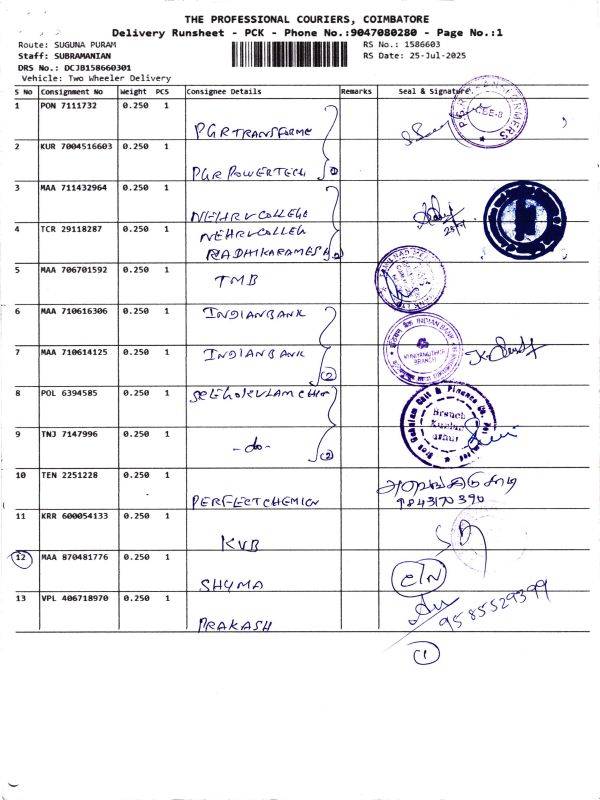 THE PROFESSIONAL COURIERS, COIMBATORE
Delivery Runsheet - PCK - Phone No.:9047080280 - Page No.:1
Route: SUGUNA PURAM
RS No.: 1586603
Staff: SUBRAMANIAN
RS Date: 25-Jul-2025
DRS No.: DCJB158660301
Vehicle: Two Wheeler Delivery
S No Consignment No Weight PCS Consignee Details Remarks Seal & Signature
1 PON 7111732 0.250 1
PGR TRANSFORME
PGR TRANSFORMERS
2 KUR 7004516603 0.250 1
PGR POWERTECH (2)
3 MAA 711432964 0.250 1
NEHRU COLLEGE
4 TCR 29118287 0.250 1
NEHRU COLLEG
RADHIKARAMESH
5 MAA 706701592 0.250 1
TMB
6 MAA 710616306 0.250 1
INDIANBANK
INDIAN BANK
BRANCH
7 MAA 710614125 0.250 1
INDIANBANK (2)
8 POL 6394585 0.250 1
SREEGOKULAM CHIT
Sree Gokulam Chit & Finance Co.
Branch
9 TNJ 7147996 0.250 1
-do- (2)
10 TEN 2251228 0.250 1
PERFECTCHEMICA
9843170390
11 KRR 600054133 0.250 1
KVB
12 MAA 870481776 0.250 1
SHYMA
C/N
13 VPL 406718970 0.250 1
PRAKASH
9585529399
(1)